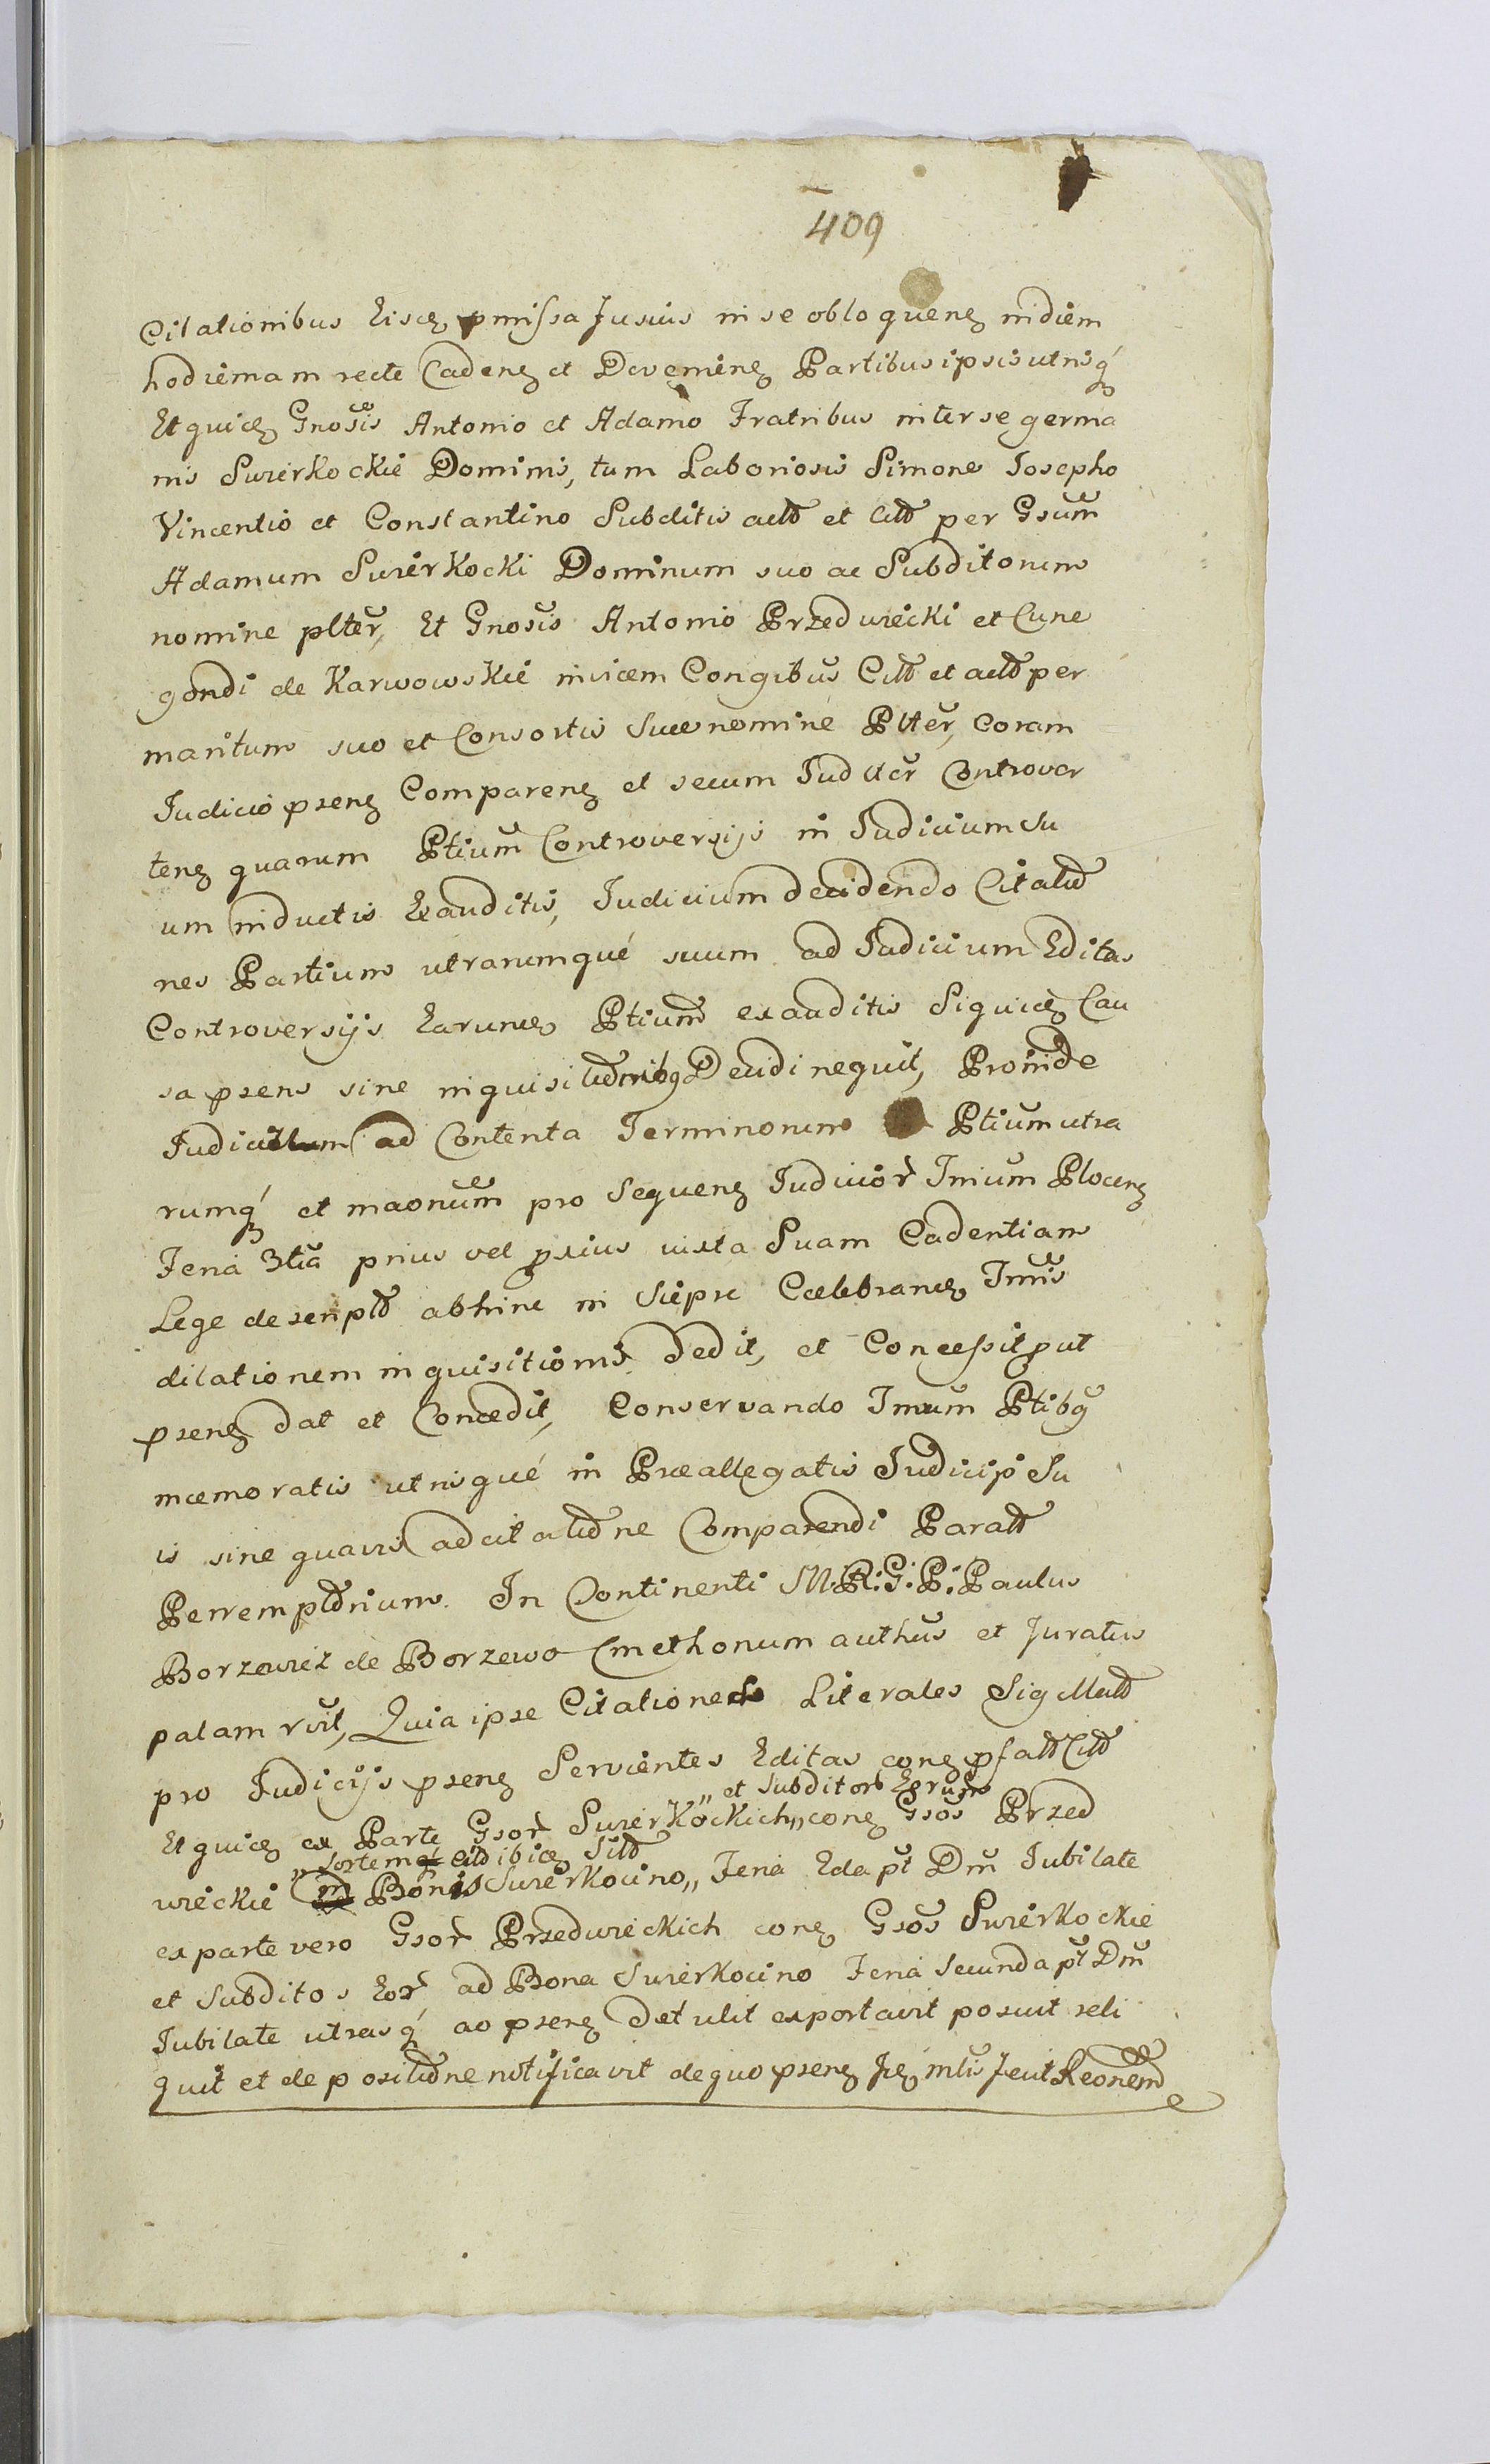 409
Citationibus Eisdę pmissa Jusius in se obloquenę in diem
hodiernam recte Cadenę et Devęnienę Partibus ipsis utrisq́
Et quidę Gnosis Antonio et Adamo Fratribus inter se germa
nis Swierkockie Dominis, tum Laboriosis Simone Josepho
Vincentio et Constantino Subditis actd et Citd per Gsum
Adamum Swierkocki Dominum suo ac Subditorum
nomine plter, Et Gnosis Antonio Przedwiecki et Cune
gondi de Karwowskie invicem Congibus Citd et actd per
maritum suo et Consortis Suae nomine Plter, Coram
Judicio psenę Comparenę et secum Judlter Controver
tenę quarum Ptium Controversijs in Judicium Su
um inductis Exauditis, Judicium decidendo Citatio
nes Partium utrarumque suum ad Judicium Editas
Controversijs Earundę Ptium exauditis Siquidę Cau
sa psens sine inquisitionibg Decidi nequit, Proinde
Judicium ad Contenta Terminorum Ptium utra
rumq́ et maonum pro Sequenę Judicior Tmium Plocenę
Feria 3tia prius vel pxius iuxta Suam Cadentiam
Lege descripto abhinc in Sieprc Caelebrandę Tmis
dilationem inquisitionis dedit, et Concessit put
psenę dat et Concedit, Conservando Tmum Ptibg
memoratis utrisque in Praeallegatis Judicijs Su
is sine quavis adcitatione Comparendi Paratd
Perremptorium. In Continenti M.R.G.P. Paulus
Borzewicz de Borzewo Cmethonum authus et Juratus
palam rvit, Quia ipse Citationes Literales Sigillatd
pro Judicijs psenę Servientes Editas conę pfatd Citd
et Subditor Eorum
Et quidę ex Parte Gsor Swierkockich,, conę Gsos Przed
Sortem Citd ibidę Sitd
wieckie in Bonis Swierkocino,, Feria Eda pt Dm Jubilate
ex parte vero Gsor Przedwieckich conę Gsos Swierkockie
et Subditos Eor ad Bona Swierkocino Feria Secunda pt Dm
Jubilate utrasq́ ao psenę detulit exportavit posuit reli
quit et de positione notificavit de quo psenę Jdę mlis fecit Reonem